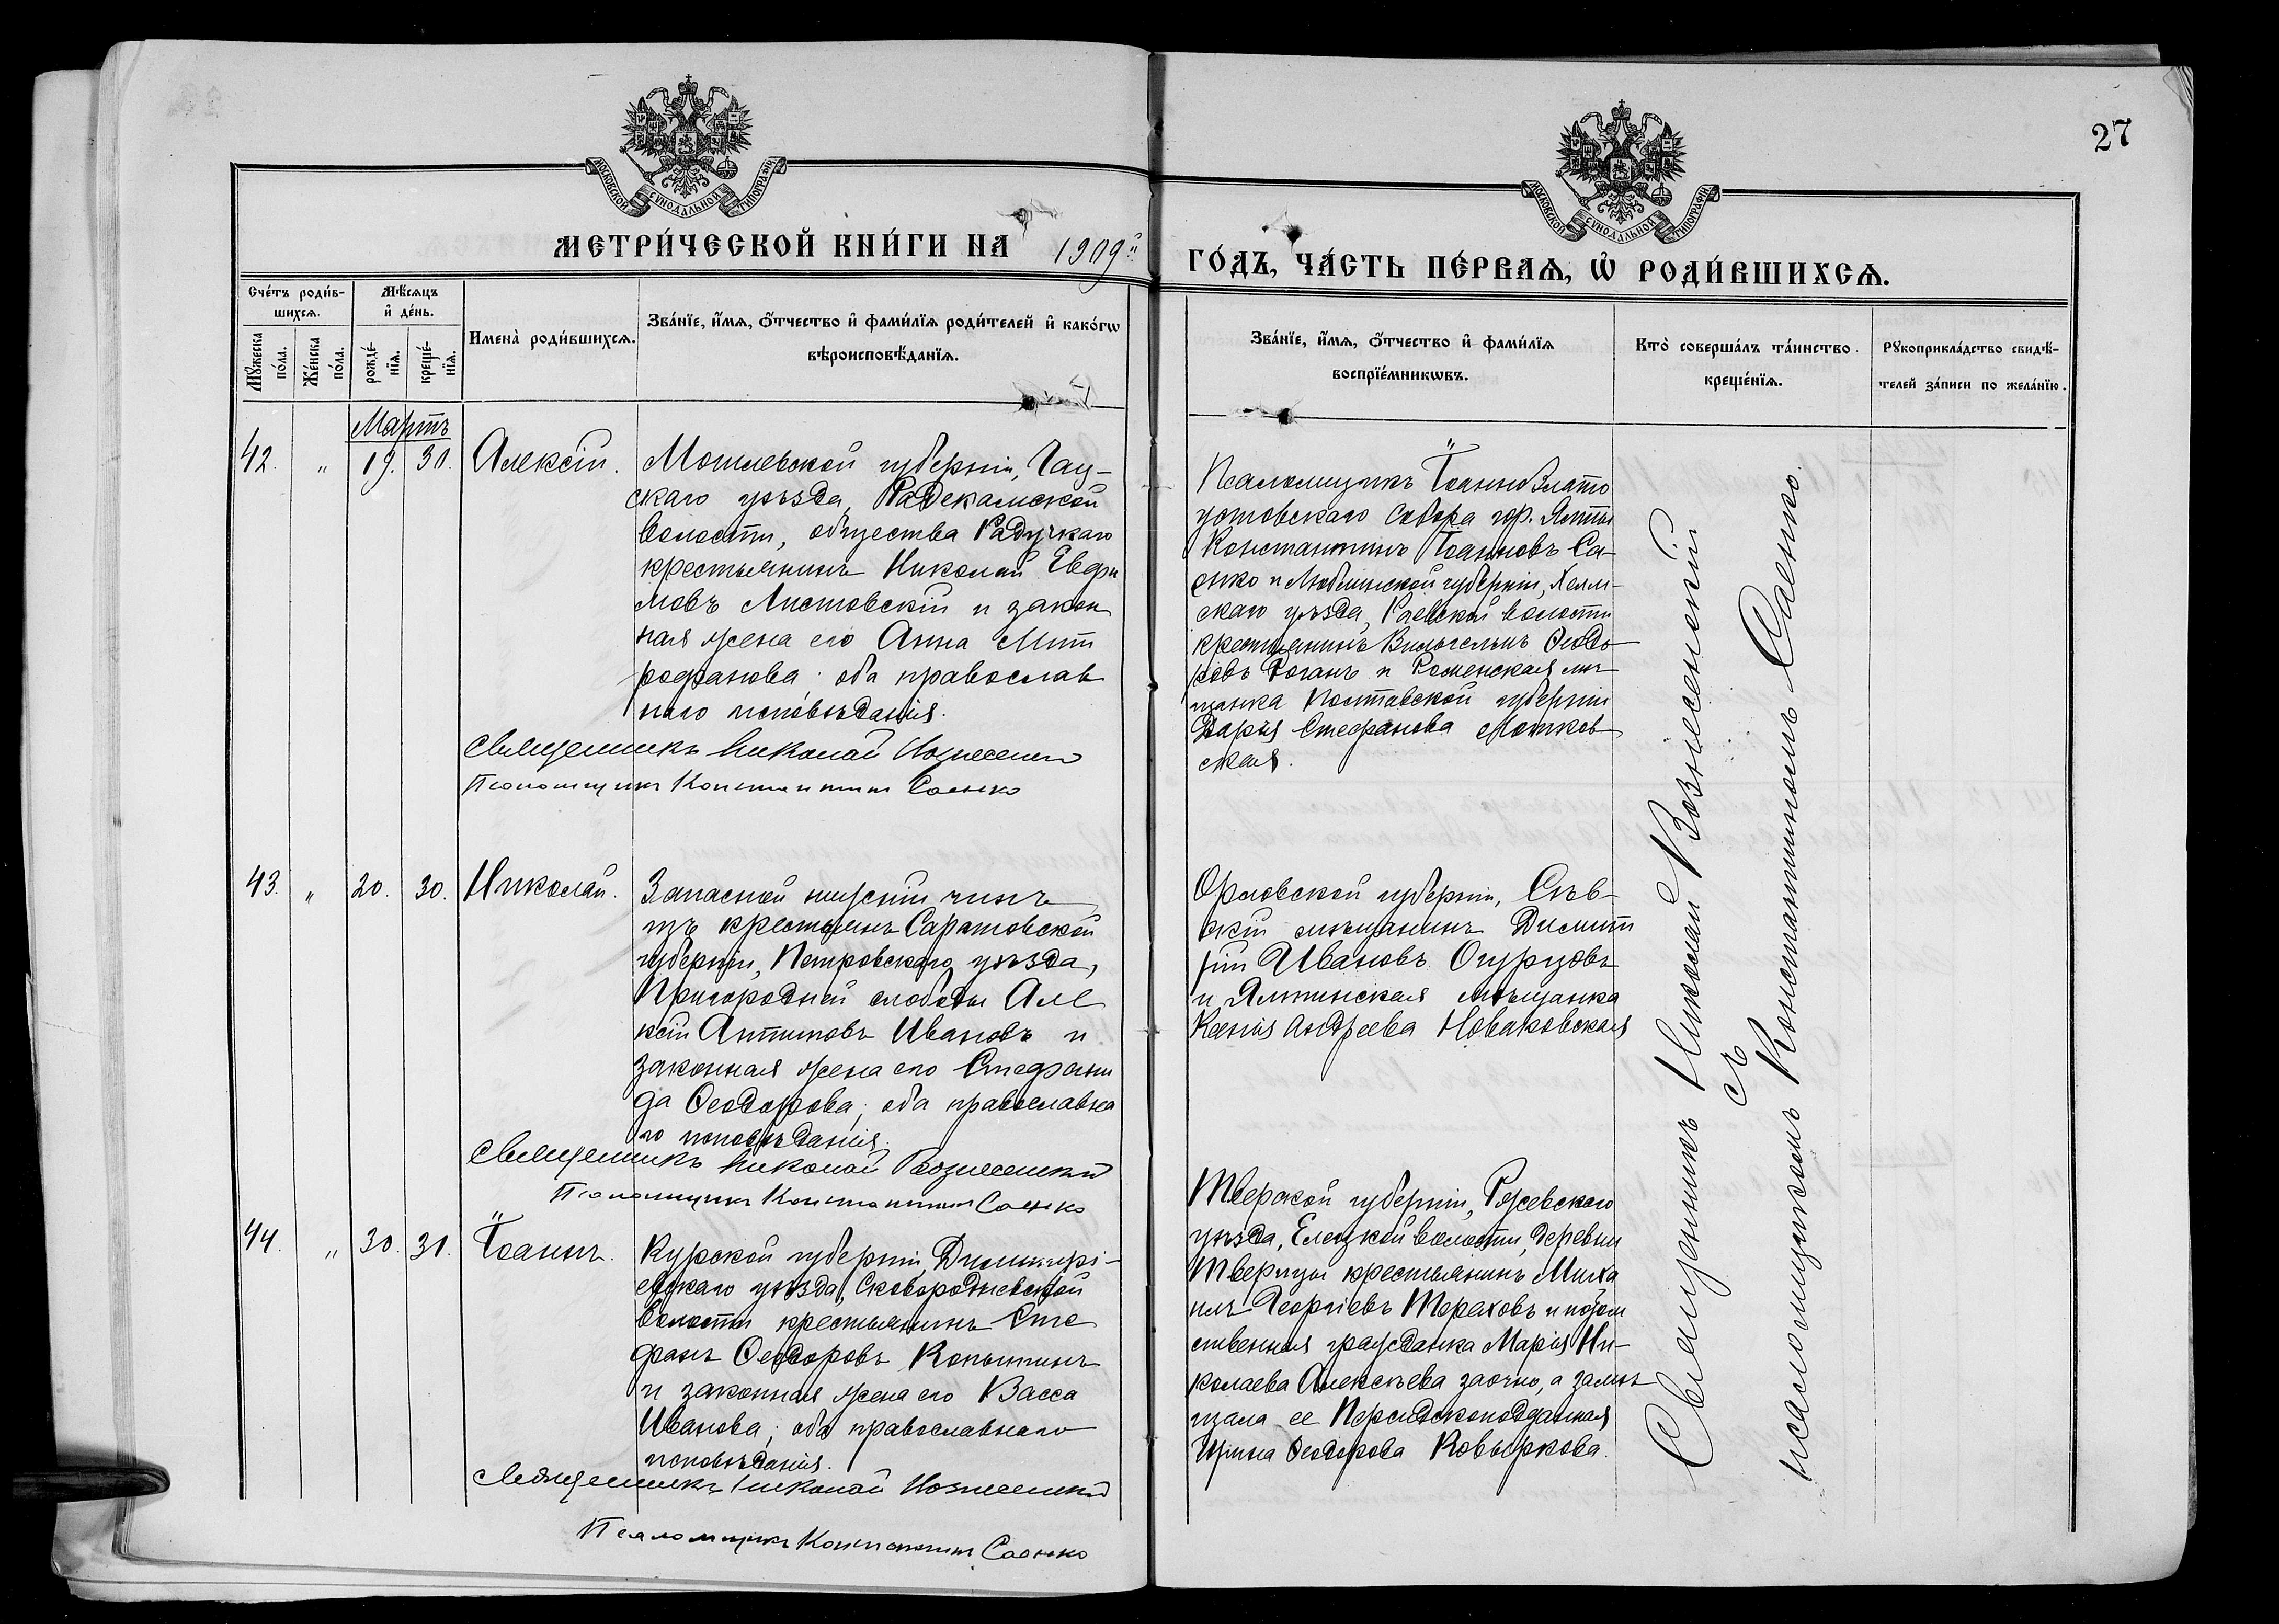 27
МОСКОВСКОЙ СѴНОДАЛЬНОЙ ТИПОГРАФІИ
МОСКОВСКОЙ СѴНОДАЛЬНОЙ ТИПОГРАФІИ
МЕТРИ́ЧЕСКОЙ КНИ́ГИ НА 1909й
ГО́ДЪ, ЧА́СТЬ ПЕ́РВАѦ, Ѡ РОДИ́ВШИХСѦ.
Сче́тъ роди́в-
шихсѧ.
Мꙋжеска
по́ла.
Же́нска
по́ла.
Мѣ́сѧцъ
и҆ де́нь.
рожде́-
нїѧ.
креще́-
нїѧ.
Имена̀ роди́вшихсѧ.
Зва́нїе, и҆́мѧ, ѻ҆́тчество и҆ фами́лїѧ роди́телей и҆ како́гѡ
вѣроисповѣ́данїѧ.
Зва́нїе, и҆́мѧ, ѻ҆́тчество и҆ фами́лїѧ
воспрїе́мникѡвъ.
Кто̀ соверша́лъ та́инство
креще́нїѧ.
Рꙋкоприкла́дство свидѣ́-
телей за́писи по жела́нїю.
Мартъ
42. " 19. 30. Алексій.
Могилевской губерніи, Чау-
скаго уѣзда, Радекамской
волости, общества Радучкаго
крестьянинъ Николай Евфи
мовъ Листовскій и закон
ная жена его Анна Мит
рофанова; оба православ
наго исповѣданія.
Священникъ Николай Вознесенскій
Псаломщикъ Константинъ Саенко
Псаломщикъ Іоанно Злато
устовскаго Собора гор. Ялты
Константинъ Іоанновъ Са-
енко и Люблинской губерніи, Холм-
скаго уѣзда, Раевской волости
крестьянинъ Вильгельмъ Ѳеодо
ровъ Роганъ и Роменская мѣ
щанка Полтавской губерніи
Дарья Стефанова Мотков
ская.
43. " 20. 30. Николай.
Запасной нижній чинъ
изъ крестьянъ Саратовской
губерніи, Петровскаго уѣзда,
Пригородней слободы Але
ксій Антиповъ Ивановъ и
законная жена его Стефани
да Ѳеодорова; оба православна
го исповѣданія.
Священникъ Николай Вознесенскій
Псаломщикъ Константинъ Саенко
Орловской губерніи, Сѣв-
скій мѣщанинъ Димит
рій Ивановъ Огурцовъ
и Ялтинская мѣщанка
Ксенія Андреева Новаковская
44. " 30. 31. Іоаннъ.
Курской губерніи, Димитрі-
евскаго уѣзда, Сковородневской
волости крестьянинъ Сте
фанъ Ѳеодоровъ Копытинъ
и законная жена его Васса
Иванова; оба православнаго
исповѣданія.
Священникъ Николай Вознесенскій
Псаломщикъ Константинъ Саенко
Тверской губерніи, Ржевскаго
уѣзда, Елецкой волости, деревни
Тверицы крестьянинъ Миха
илъ Георгіевъ Тераховъ и потом
ственная гражданка Марія Ни-
колаева Алексѣева заочно, а замѣ
щала ее Персидскоподданная
Ирина Ѳеодорова Ковыркова.
Священникъ Николай Вознесенскій
съ
псаломщикомъ Константиномъ Саенко.